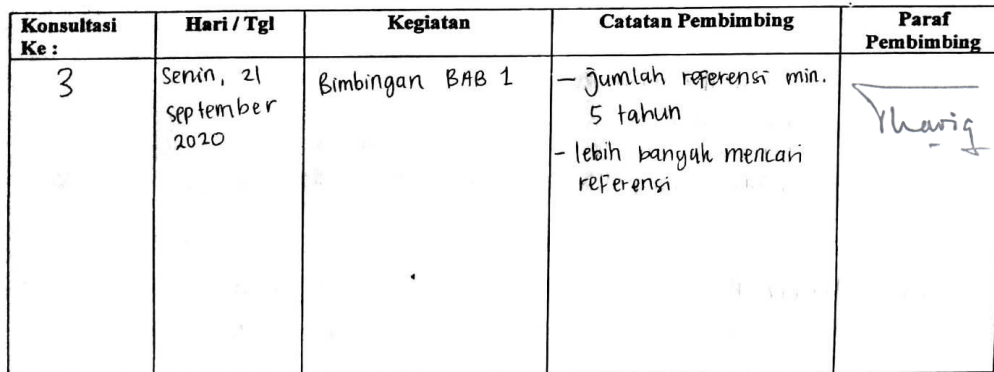 Konsultasi Ke :
Hari / Tgl
Kegiatan
Catatan Pembimbing
Paraf Pembimbing
3
Senin, 21
September
2020
Bimbingan BAB 1
- Jumlah referensi min.
5 tahun
- lebih banyak mencari
referensi
Thariq